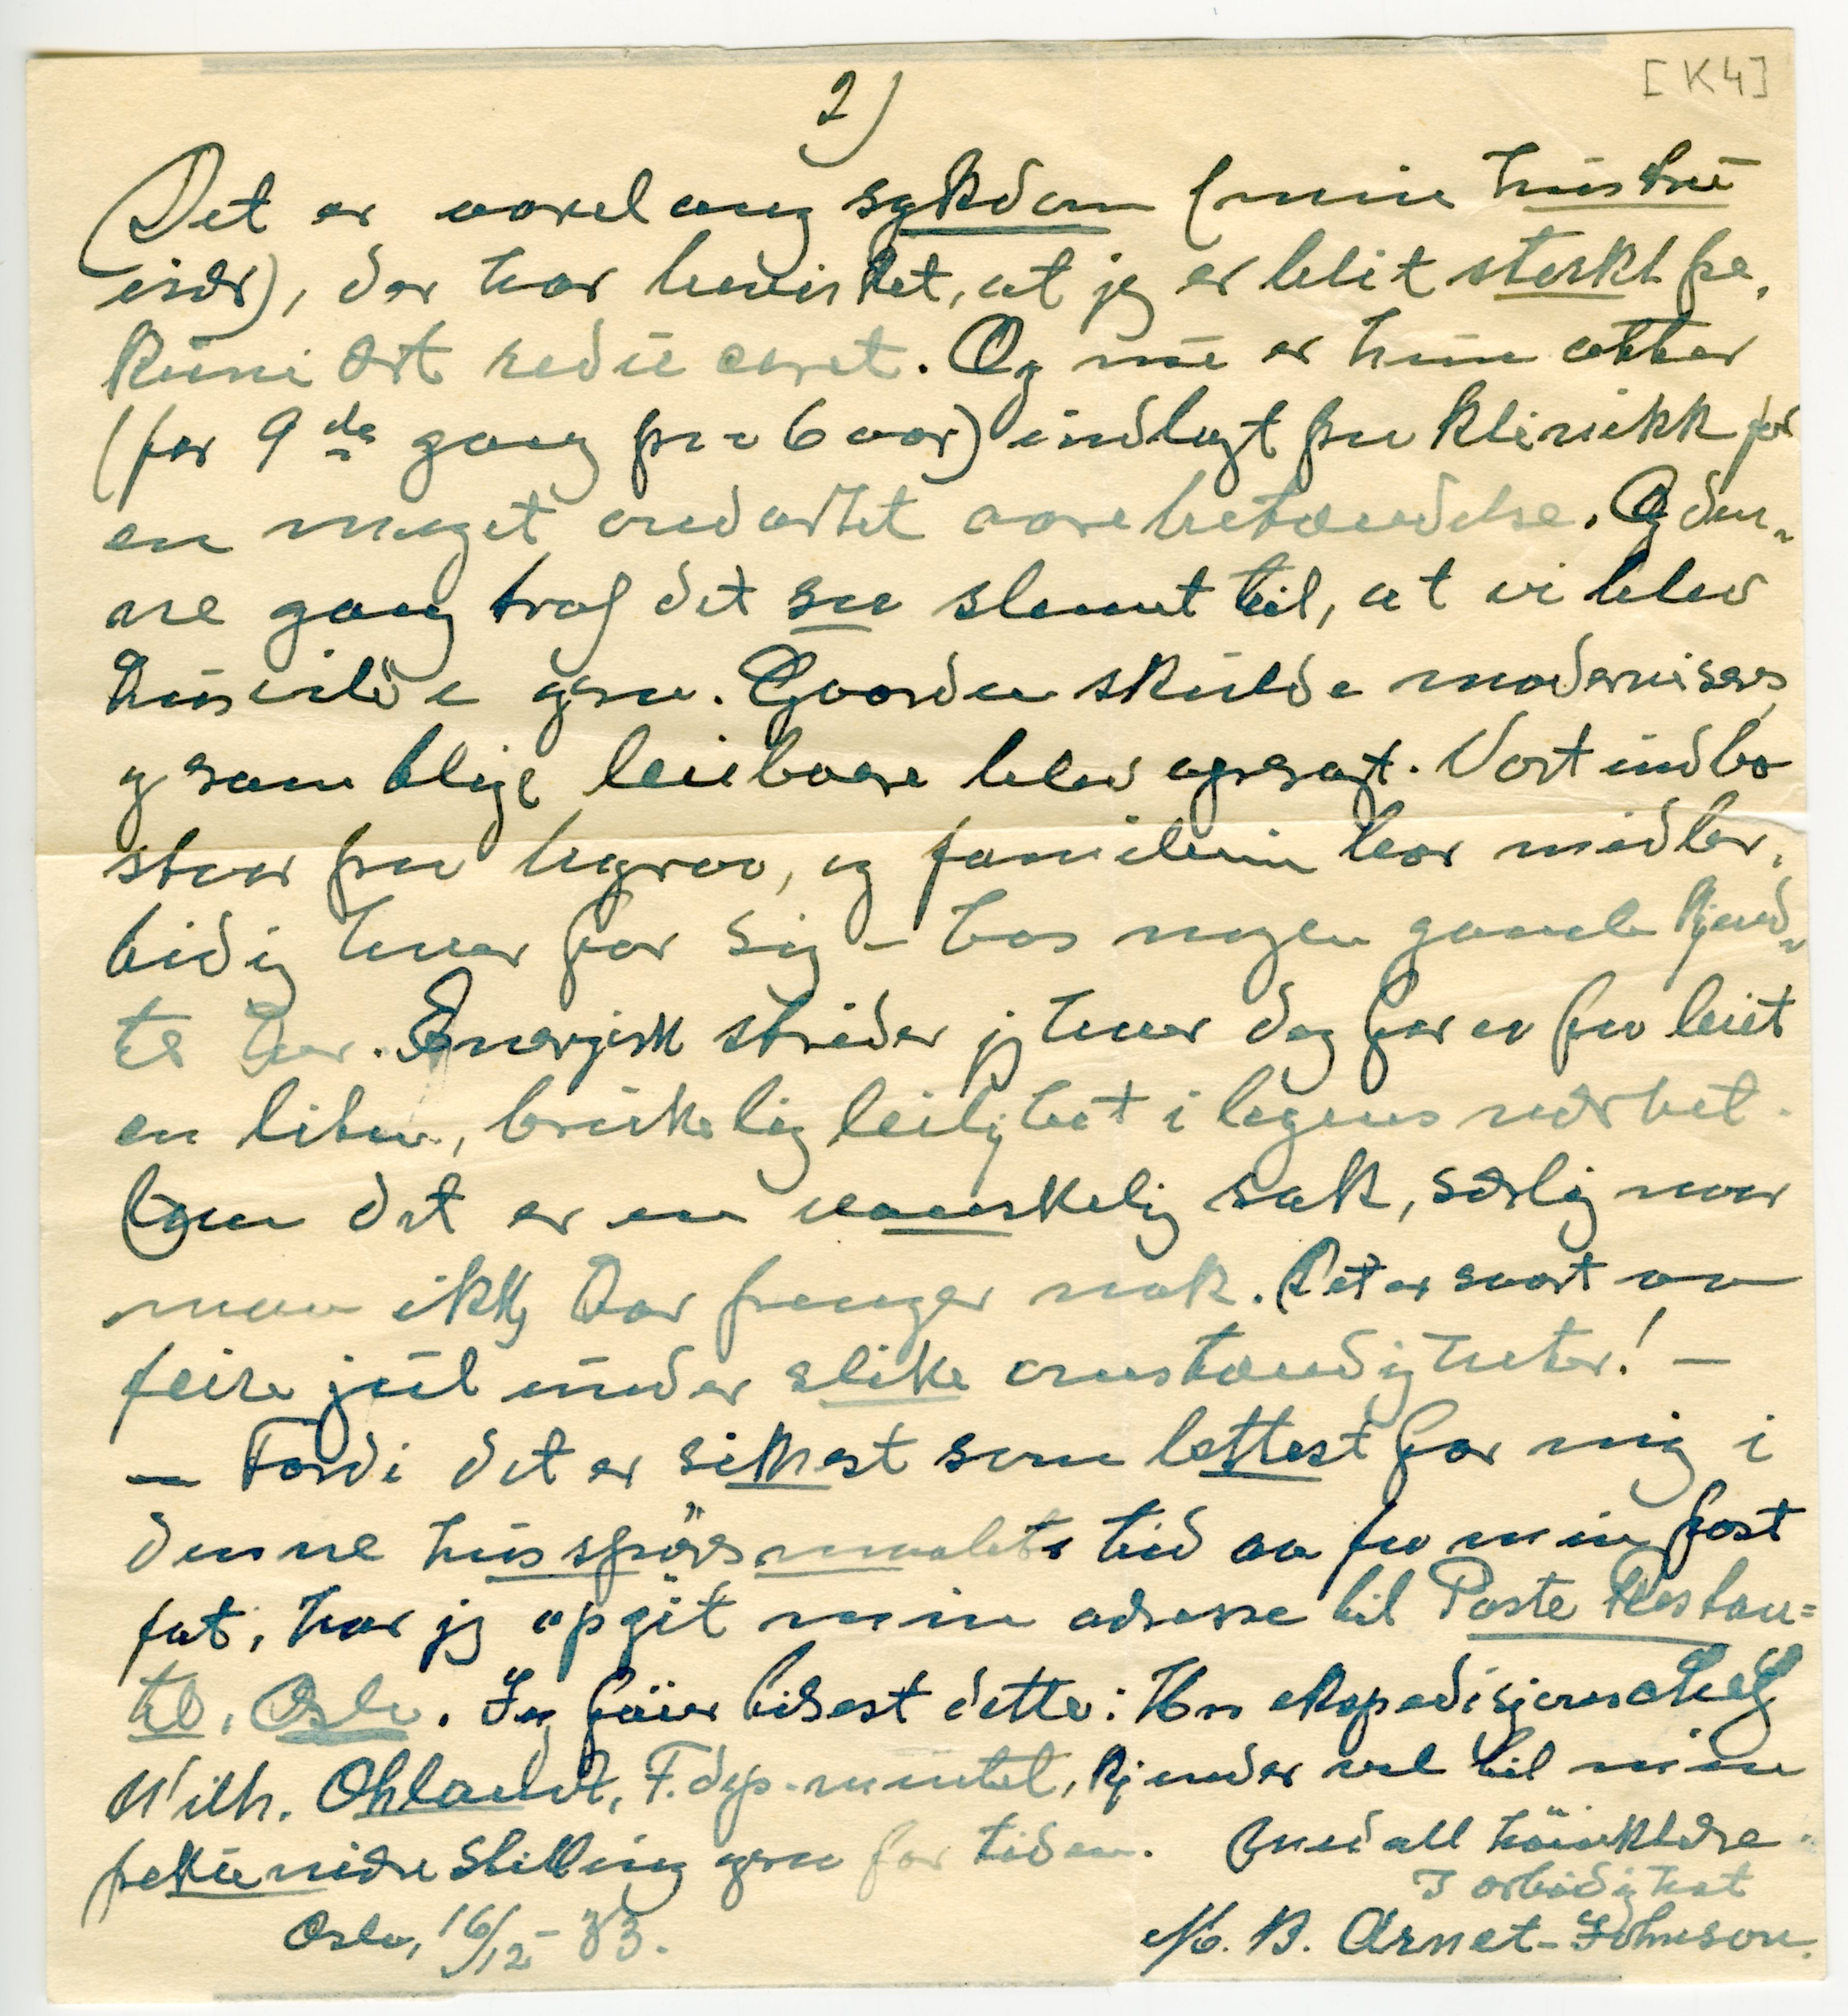 [K4]
2)
Det er aarelang sykdom (min hustru
især), der har bevirket, at jeg er blit sterkt pe-
kuniært reduceret. Og nu er hun atter
(for 9de gang paa 6 aar) indlagt paa klinikk for
en meget ondartet aarebetændelse. Og den-
ne gang traf det saa slemt til, at vi blev
husvilde ogsaa. Gaarden skulde moderniseres,
og samtlige leieboere blev opsagt. Vort indbo
staar paa lager, og familien bor midler-
tidig hver for sig – hos nogen gamle kjend-
te her. Energisk strider jeg hver dag for at faa leiet
en liten, brukelig leilighet i legens nærhet.
Men det er en vanskelig sak, særlig naar
man ikke har penger nok. Det er svart aa
feire jul under slike omstændigheter! –
– Fordi det er sikkrest som lettest for mig i
denne husspørsmaalets tid aa faa min post
fat, har jeg opgit min adresse til Poste Restan=
te, Oslo. Jeg føier tilsist dette: Hr. ekspedisjonschef
Wilh. Ohlandt, F. dep.mentet, kjender vel til min
pekuniære stilling ogsaa for tiden. Med all høiaktelse.
I ærbødighet
Oslo, 16/12 – 33.
M. B. Arnet-Johnson.